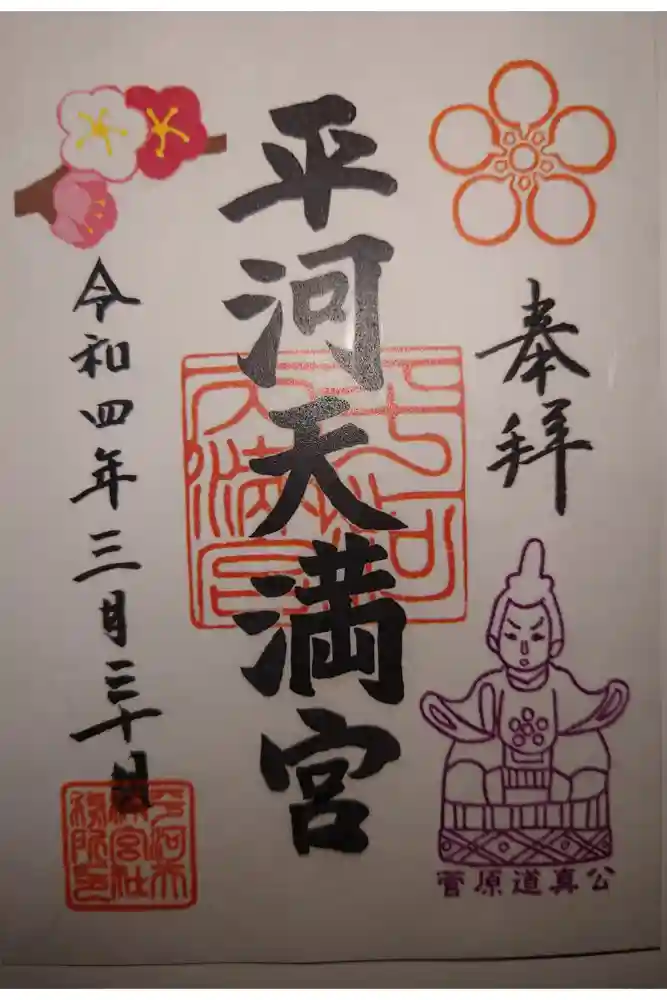 奉拝
平河天満宮
令和四年三月三十日
菅原道真公